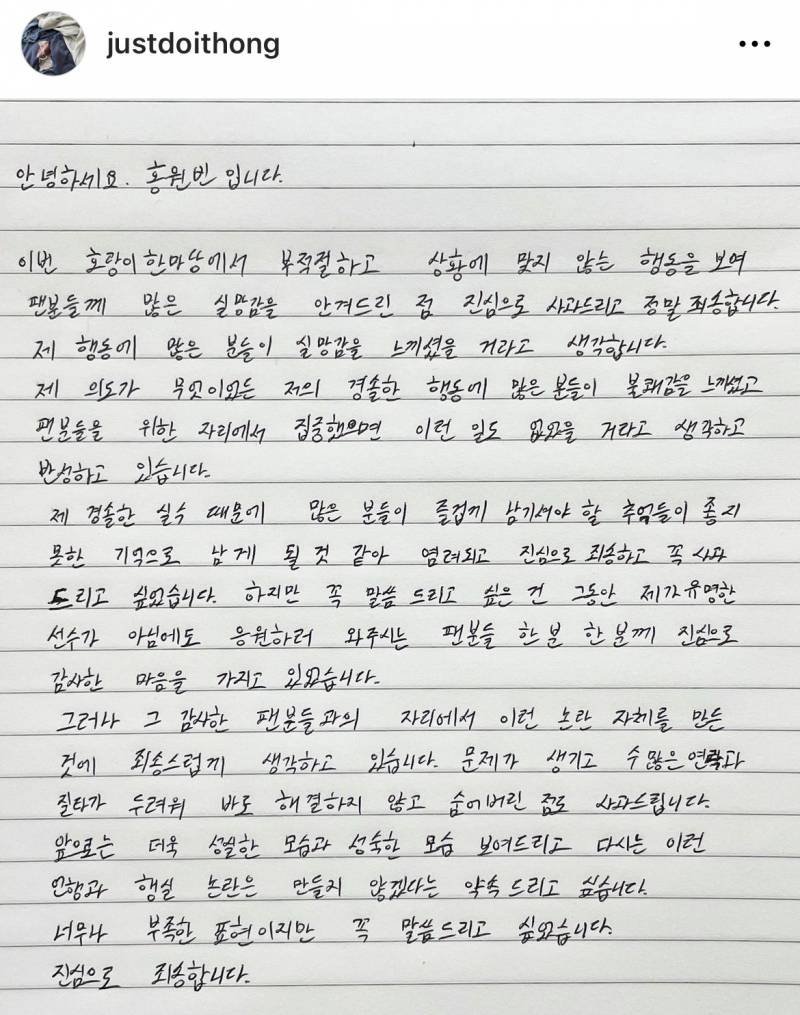 justdoithong
안녕하세요. 홍원빈 입니다.
이번 호랑이 한마당에서 부적절하고 상황에 맞지 않는 행동을 보여
팬분들께 많은 실망감을 안겨드린 점 진심으로 사과드리고 정말 죄송합니다.
제 행동에 많은 분들이 실망감을 느끼셨을 거라고 생각합니다.
제 의도가 무엇이었든 저의 경솔한 행동에 많은 분들이 불쾌감을 느끼셨고
팬분들을 위한 자리에서 집중했으면 이런 일도 없었을 거라고 생각하고
반성하고 있습니다.
제 경솔한 실수 때문에 많은 분들이 즐겁게 남기셔야 할 추억들이 좋지
못한 기억으로 남게 될 것 같아 염려되고 진심으로 죄송하고 꼭 사과
드리고 싶었습니다. 하지만 꼭 말씀 드리고 싶은 건 그동안 제가 유명한
선수가 아님에도 응원하러 와주시는 팬분들 한 분 한 분께 진심으로
감사한 마음을 가지고 있었습니다.
그러나 그 감사한 팬분들과의 자리에서 이런 논란 자체를 만든
것에 죄송스럽게 생각하고 있습니다. 문제가 생기고 수 많은 연락과
질타가 두려워 바로 해결하지 않고 숨어버린 점도 사과드립니다.
앞으로는 더욱 성실한 모습과 성숙한 모습 보여드리고 다시는 이런
언행과 행실 논란은 만들지 않겠다는 약속 드리고 싶습니다.
너무나 부족한 표현이지만 꼭 말씀드리고 싶었습니다.
진심으로 죄송합니다.